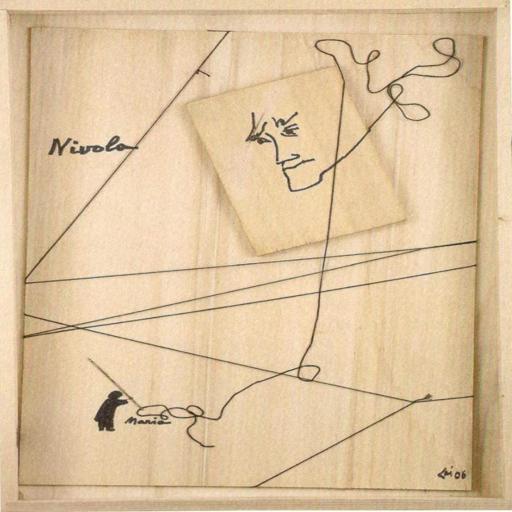 Nivola
Maria
Lai 06